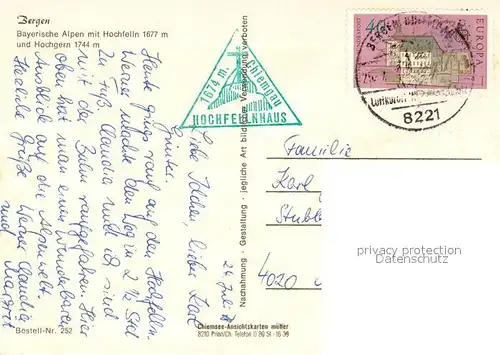 Bergen
Bayerische Alpen mit Hochfelln 1677 m
und Hochgern 1744 m
1674 m. Chiemgau
HOCHFELLNHAUS
24. Juli
Liebe Hilden, lieber Karl
Günter.
Heute gings rauf auf den Hochfelln.
Werner machte den Weg in 2 ½ Std
zu Fuß, Claudia und ich sind
mit der Bahn raufgefahren. Hier
oben hat man einen wunderbaren
Ausblick auf die Alpenwelt.
Herzliche Grüße Werner Claudia
und Margret
Bestell-Nr. 252
Nachahmung - Gestaltung - jegliche Art bildlicher Verwendung verboten
Chiemsee-Ansichtskarten müller
8210 Prien/Ch. Telefon 0 80 51 - 16 39
40
EUROPA
Luftkurort
8221
Familie
Karl
4020
privacy protection
VOLLANSICHT AUF ANFRAGE